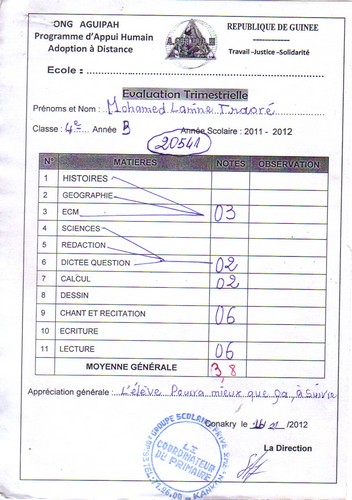 ONG AGUIPAH
Programme d'Appui Humain
Adoption à Distance
REPUBLIQUE DE GUINEE
Travail -Justice -Solidarité
Ecole :
Evaluation Trimestrielle
Prénoms et Nom : Mohamed Lamine Traoré
Classe : 4e Année B Année Scolaire : 2011 - 2012
20541
N° MATIERES NOTES OBSERVATION
1 HISTOIRES
2 GEOGRAPHIE
3 ECM 03
4 SCIENCES
5 REDACTION
6 DICTEE QUESTION 02
7 CALCUL 02
8 DESSIN
9 CHANT ET RECITATION 06
10 ECRITURE
11 LECTURE 06
MOYENNE GÉNÉRALE 3,8
Appréciation générale : L'élève Pourra mieux que ça, à Suivre
Conakry le /2012
La Direction
GROUPE SCOLAIRE PRIVE
LE COORDINATEUR DU PRIMAIRE